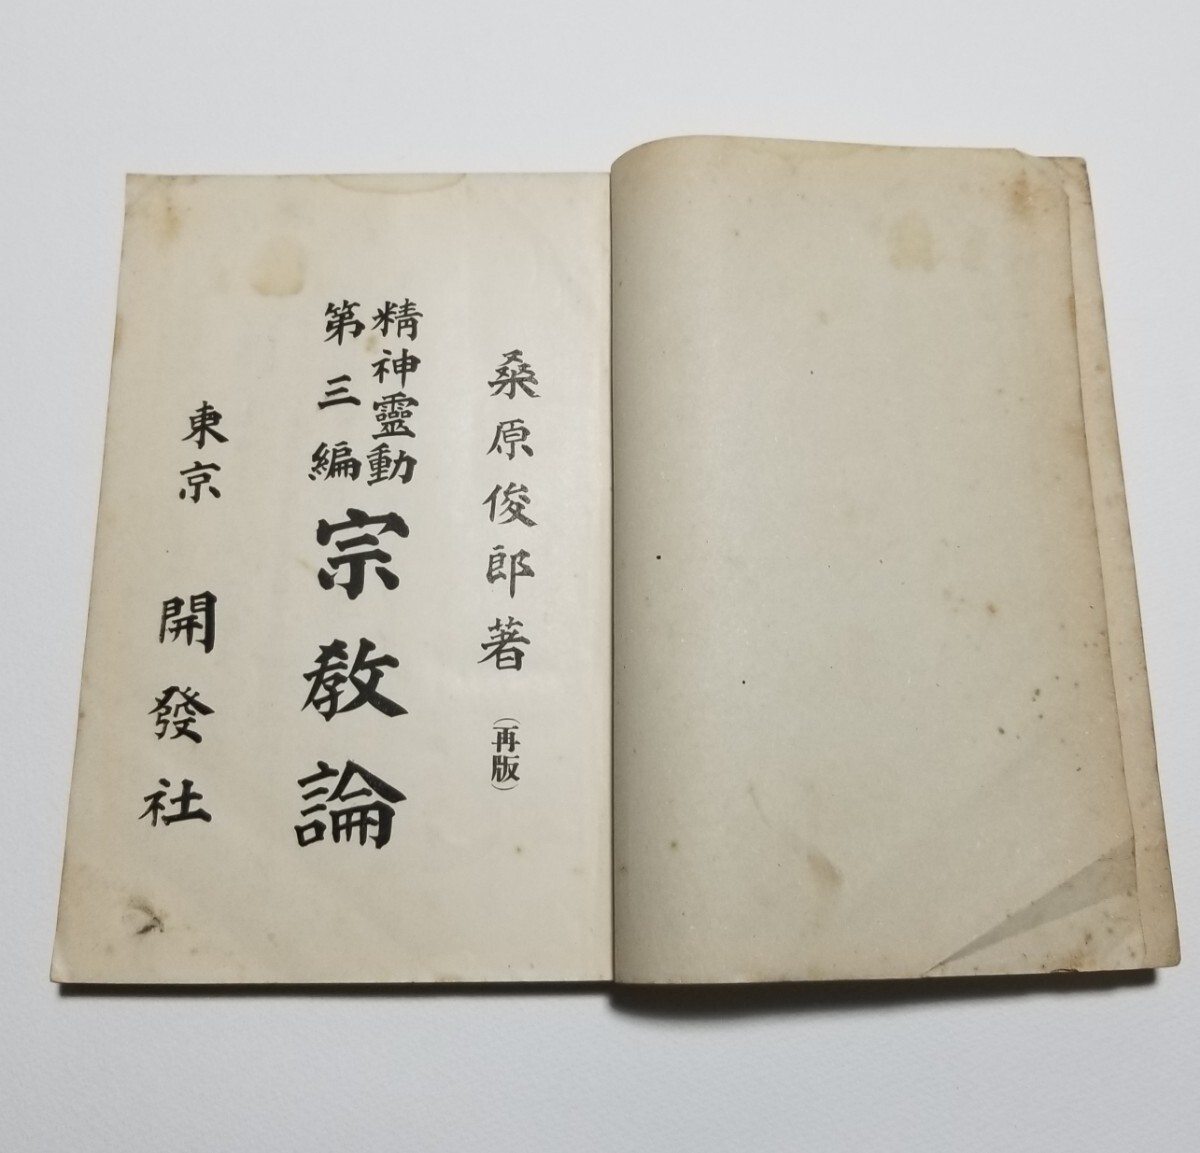 桑原俊郎著(再版)
精神靈動
第三編
宗教論
東京 開發社